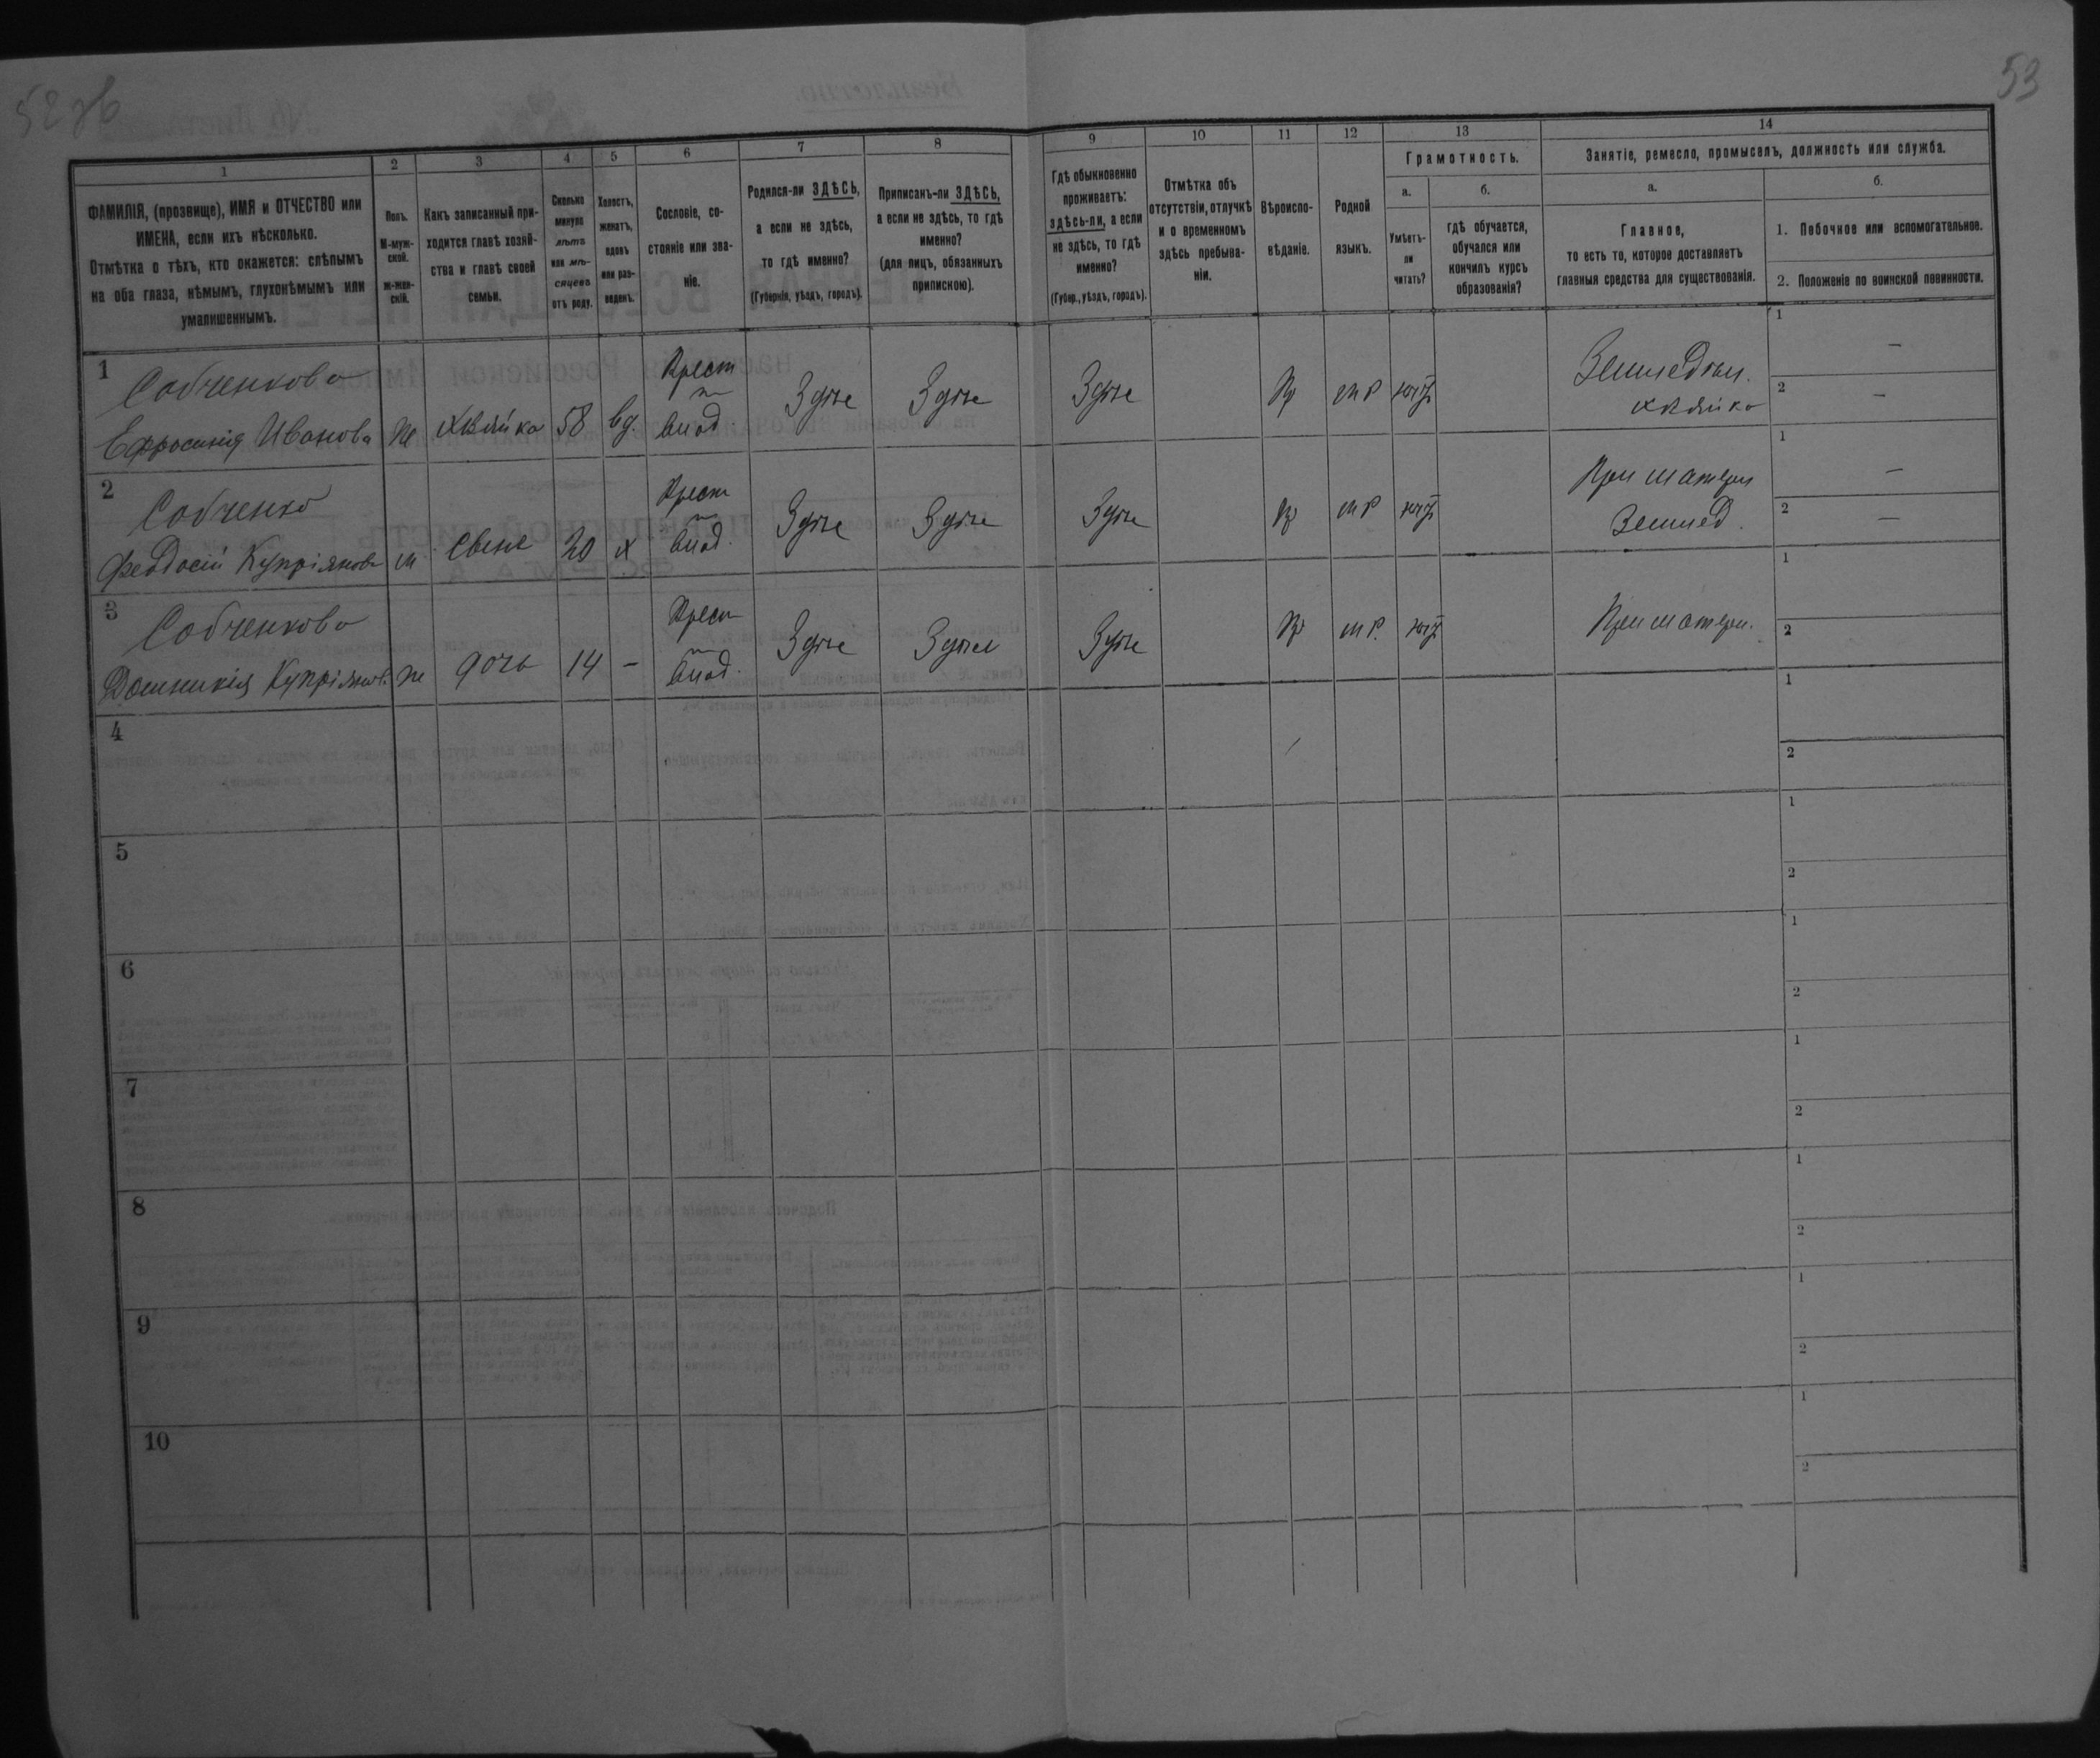 53
1
2
3
4
5
6
7
8
9
10
11
12
13
14
ФАМИЛІЯ, (прозвище), ИМЯ и ОТЧЕСТВО или
ИМЕНА, если ихъ нѣсколько.
Отмѣтка о тѣхъ, кто окажется: слѣпымъ
на оба глаза, нѣмымъ, глухонѣмымъ или
умалишеннымъ.
Полъ.
М-муж-
ской.
ж-жен-
скій.
Какъ записанный при-
ходится главѣ хозяй-
ства и главѣ своей
семьи.
Сколько
минуло
лѣтъ
или мѣ-
сяцевъ
отъ роду.
Холостъ,
женатъ,
вдовъ
или раз-
веденъ.
Сословіе, со-
стояніе или зва-
ніе.
Родился-ли ЗДѢСЬ,
а если не здѣсь,
то гдѣ именно?
(Губернія, уѣздъ, городъ).
Приписанъ-ли ЗДѢСЬ,
а если не здѣсь, то гдѣ
именно?
(для лицъ, обязанныхъ
припискою).
Гдѣ обыкновенно
проживаетъ:
здѣсь-ли, а если
не здѣсь, то гдѣ
именно?
(Губер., уѣздъ, городъ).
Отмѣтка объ
отсутствіи, отлучкѣ
и о временномъ
здѣсь пребыва-
ніи.
Вѣроиспо-
вѣданіе.
Родной
языкъ.
Грамотность.
а.
Умѣетъ-
ли
читать?
б.
гдѣ обучается,
обучался или
кончилъ курсъ
образованія?
Занятіе, ремесло, промыселъ, должность или служба.
а.
Главное,
то есть то, которое доставляетъ
главныя средства для существованія.
б.
1. Побочное или вспомогательное.
2. Положеніе по воинской повинности.
1 Собченкова Крест Земледѣл. 1 —
Ефросинія Иванова ж 58 вд. Здѣсь Здѣсь Здѣсь 2 —
2 Собченко Крест При матери 1 —
Феодосій Купріяновъ м 20 х Здѣсь Здѣсь Здѣсь Землед. 2 —
3 Собченкова Крест При матери. 1
Домникія Купріянов. ж дочь 14 — Здѣсь Здѣсь Здѣсь 2
4 1
2
5 1
2
6 1
2
7 1
2
8 1
2
9 1
2
10 1
2